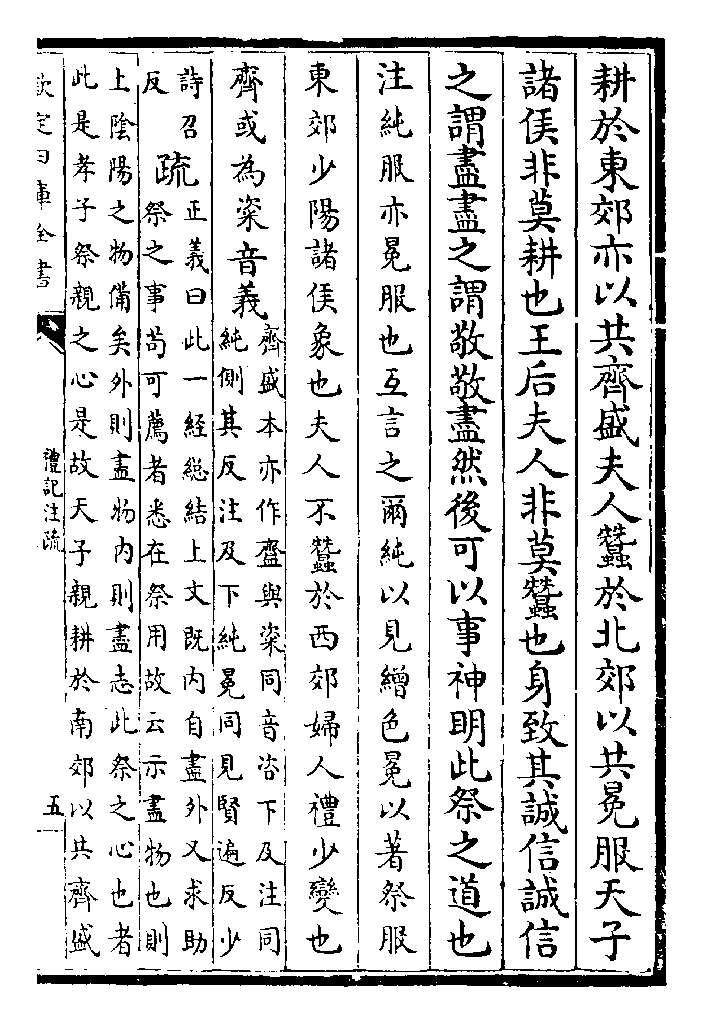 耕於東郊亦以共齊盛夫人蠶於北郊以共冕服天子
諸侯非莫耕也王后夫人非莫蠶也身致其誠信誠信
之謂盡盡之謂敬敬盡然後可以事神明此祭之道也
注純服亦冕服也互言之爾純以見繒色冕以著祭服
東郊少陽諸侯象也夫人不蠶於西郊婦人禮少變也
齊或為粢音義
齊盛本亦作齍與粢同音咨下及注同
純側其反注及下純冕同見賢遍反少
詩召
反
疏
正義曰此一經總結上文既內自盡外又求助
祭之事苟可薦者悉在祭用故云示盡物也則
上陰陽之物備矣外則盡物內則盡志此祭之心也者
此是孝子祭親之心是故天子親耕於南郊以共齊盛
欽定四庫全書
禮記注疏
五